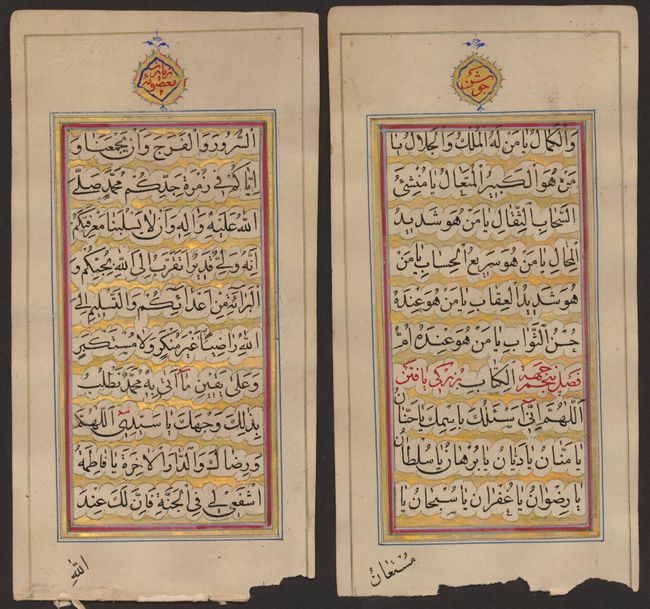 جوشن
وَالْكَمالِ يا مَنْ لَهُ الْمُلْكُ وَالْجَلالُ يا
مَنْ هُوَ الْكَبيرُ الْمُتَعالِ يا مُنْشِئَ
السَّحابِ الثِّقالِ يا مَنْ هُوَ شَديدُ
الْمِحالِ يا مَنْ هُوَ سَريعُ الْحِسابِ يا مَنْ
هُوَ شَديدُ الْعِقابِ يا مَنْ هُوَ عِنْدَهُ
حُسْنُ الثَّوابِ يا مَنْ هُوَ عِنْدَهُ اُمُّ
فصل پنجم جهة الْكِتابِ بزرگی یافتن
اَللّهُمَّ اِنّي اَسْئَلُكَ بِاسْمِكَ يا حَنّانُ
يا مَنّانُ يا دَيّانُ يا بُرْهانُ يا سُلْطانُ
يا رِضْوانُ يا غُفْرانُ يا سُبْحانُ يا
مُسْتَعانُ
زيارت معصومه
السُّرُورَ وَالْفَرَجَ وَاَنْ يَجْمَعَنا وَ
اِيّاكُمْ في زُمْرَةِ جَدِّكُمْ مُحَمَّدٍ صَلَّي
اللهُ عَلَيْهِ وَالِهِ وَاَنْ لا يَسْلُبَنا مَعْرِفَتَكُمْ
اِنَّهُ وَلِيٌّ قَديرٌ اَتَقَرَّبُ اِلَي اللهِ بِحُبِّكُمْ وَ
الْبَرائَةِ مِنْ اَعْدائِكُمْ وَالتَّسْليمِ اِلَي
اللهِ راضِياً بِهِ غَيْرَ مُنْكِرٍ وَلا مُسْتَكْبِرٍ
وَعَلي يَقينِ ما اَتي بِهِ مُحَمَّدٌ نَطْلُبُ
بِذلِكَ وَجْهَكَ يا سَيِّدي اَللّهُمَّ
وَرِضاكَ وَالدّارَ الْاخِرَةِ يا فاطِمَةُ
اشْفَعي لي فِي الْجَنَّةِ فَاِنَّ لَكِ عِنْدَ
اللهِ